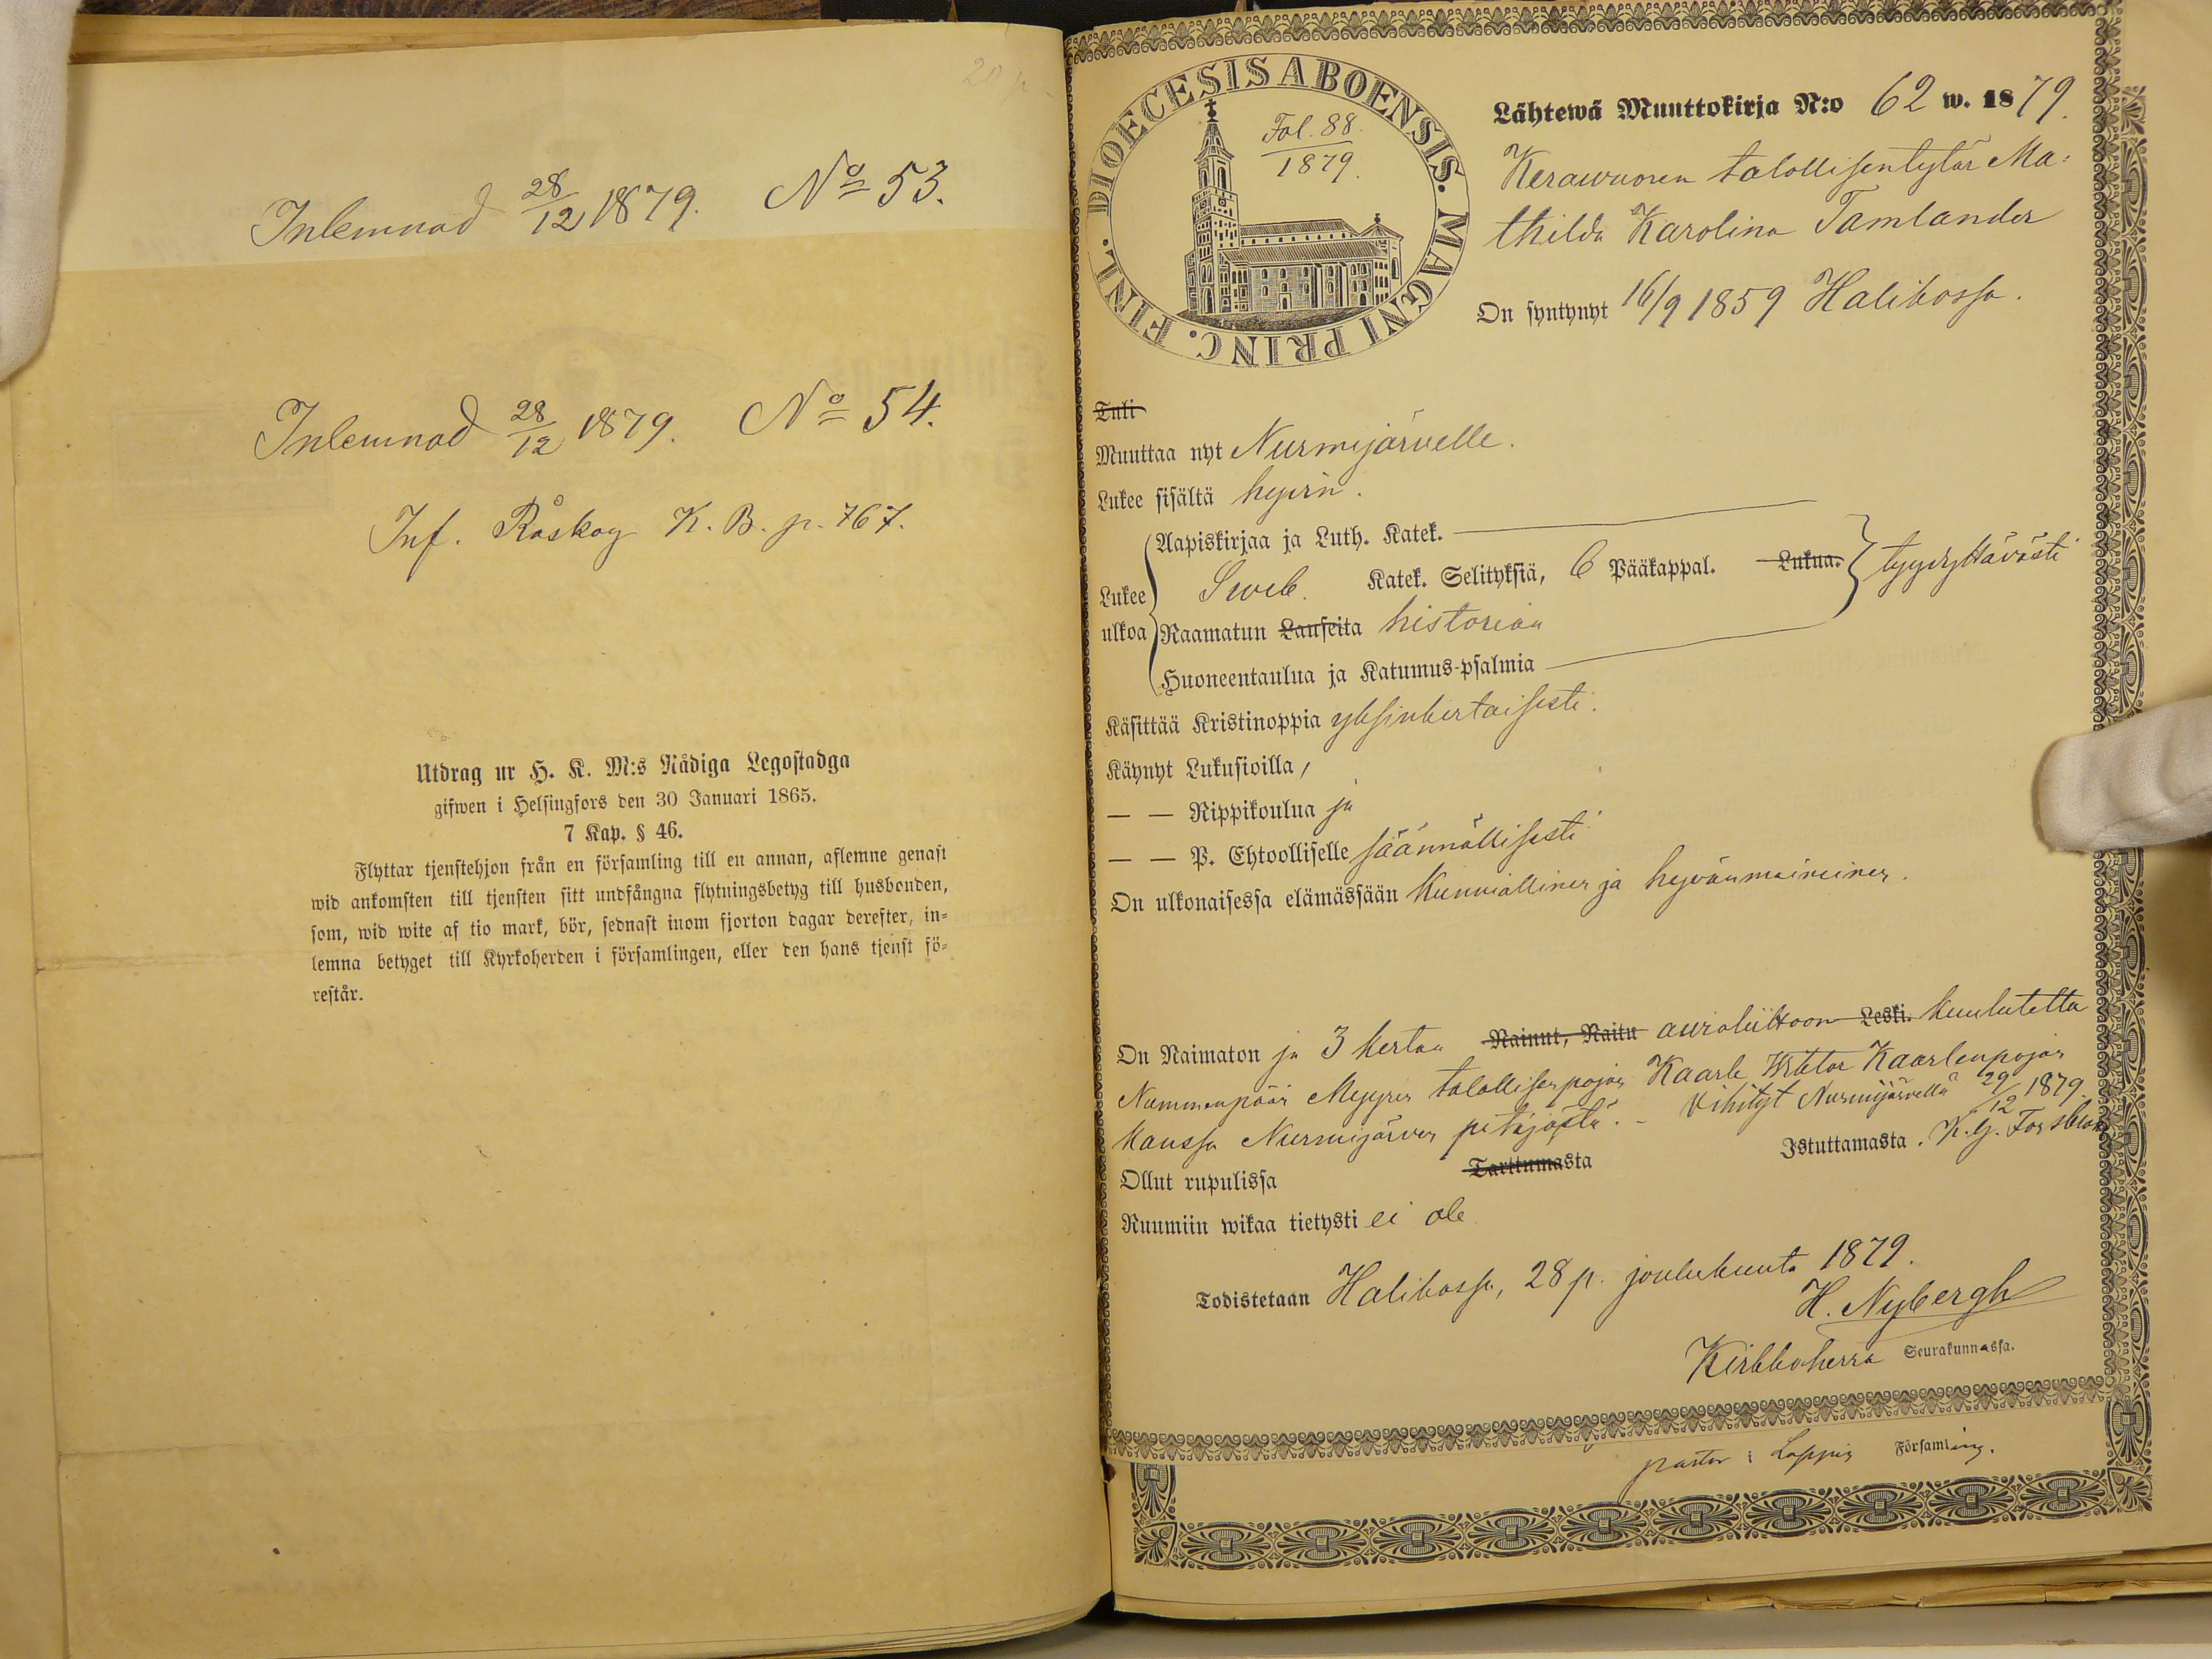 20 p.
Inlemnad 28/12 1879. No 53.
Inlemnad 28/12 1879. No 54.
Inf. Råskog K. B. p. 767.
Utdrag ur H. K. M:s Nådiga Legostadga
gifwen i Helsingfors den 30 Januari 1865.
7 Kap. § 46.
Flyttar tjenstehjon från en församling till en annan, aflemne genast
wid ankomsten till tjensten sitt undfångna flytningsbetyg till husbonden,
som, wid wite af tio mark, bör, sednast inom fjorton dagar derefter, in=
lemna betyget till Kyrkoherden i församlingen, eller den hans tjenst fö=
restår.
DIOECESIS ABOENSIS. MAGNI PRINC. FINL.
Fol. 88.
1879.
Lähtewä Muuttokirja N:o 62 w. 1879.
Kerawuoren talollisentytär Ma=
thilda Karolina Tamlander
On syntynyt 16/9 1859 Halikossa.
Tuli
Muuttaa nyt Nurmijärvelle.
Lukee sisältä hyvin.
Lukee ulkoa
Aapiskirjaa ja Luth. Katek.
Sweb. Katek. Selityksiä, 6 Pääkappal. Lukua. tyydyttävästi
Raamatun Lauseita historiaa
Huoneentaulua ja Katumus-psalmia
Käsittää Kristinoppia yksinkertaisesti.
Käynyt Lukusioilla,
— — Rippikoulua ja
— — P. Ehtoolliselle säännöllisesti
On ulkonaisessa elämässään kunniallinen ja hyvänmaineinen.
On Naimaton ja 3 kertaa Nainut, Naitu avioliittoon Leski. kuulutettu
Nummenpään Myyryn talollisenpojan Kaarle Wiktor Kaarlenpojan
kanssa Nurmijärven pitäjästä. - Vihityt Nurmijärvellä 29/12 1879.
Ollut rupulissa Tarttumasta Istuttamasta. K. G. Forsblom
Ruumiin wikaa tietysti ei ole
Todistetaan Halikossa, 28 p. joulukuuta 1879.
H. Nybergh
Kirkkoherra Seurakunnassa.
pastor i Loppis Församling.